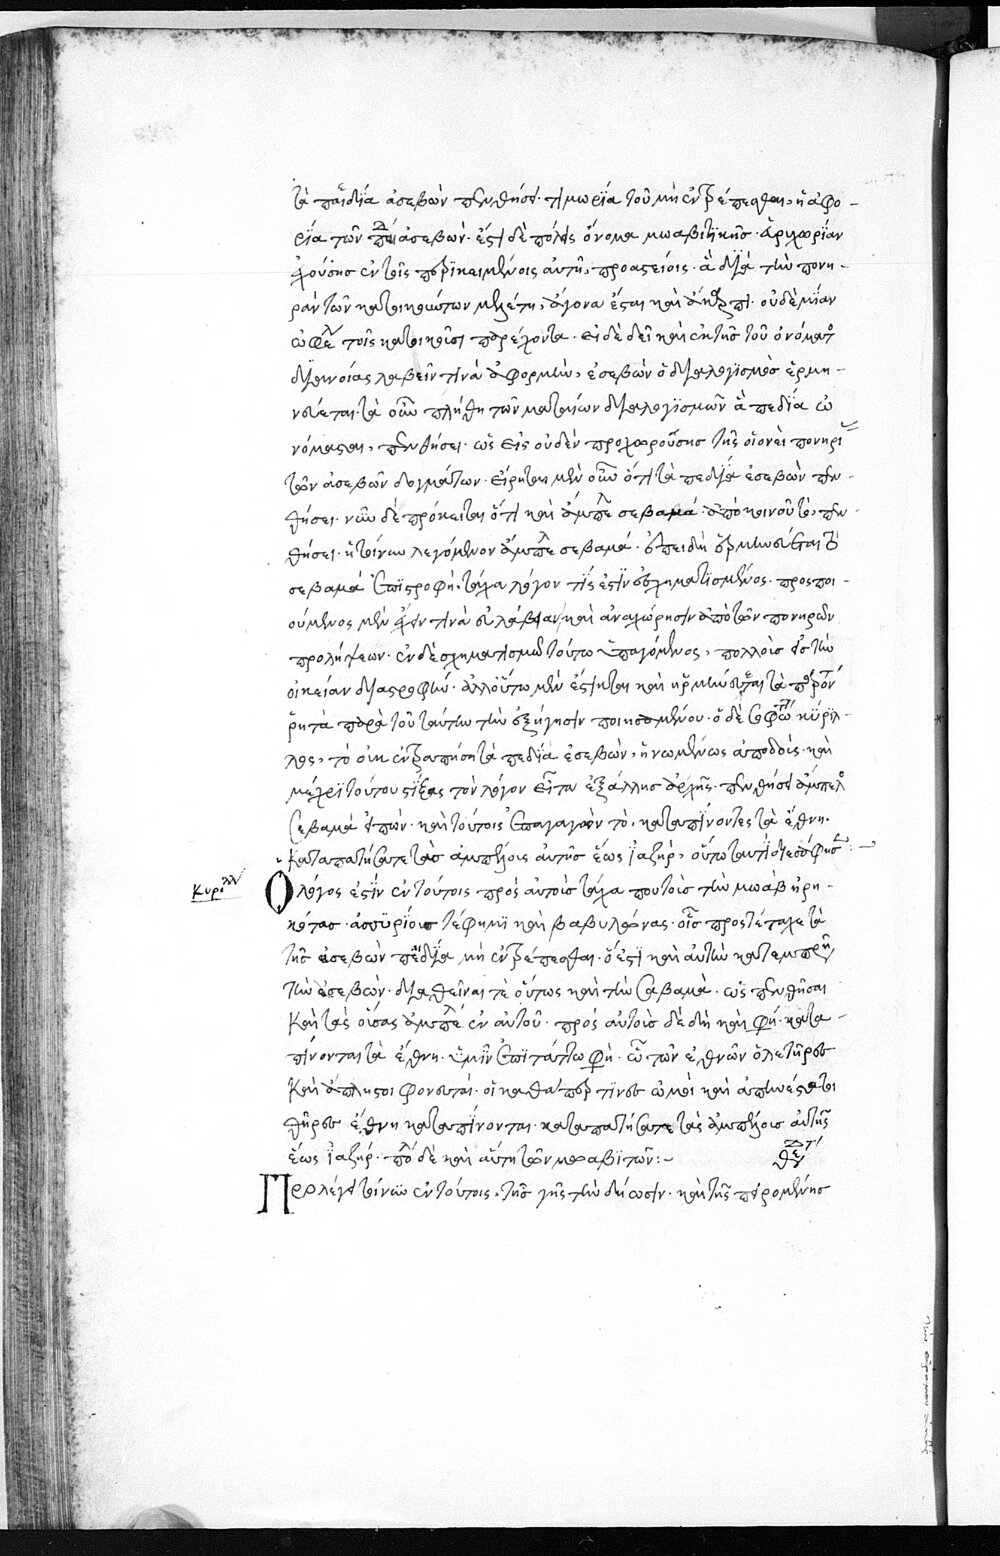 τὰ παιδία ἀσεβὼν πενθήσει· τιμωρία τοῦ μὴ ἐντρέπεσθαι, ἡ ἀφο-
ρία τῶν πεδίων ἀσεβών· ἔστι δὲ πόλις ὄνομα μωαβιτικῆς·
ἐχούσης ἐν τοῖς περικειμένοις αὐτῇ, προαστείοις· ἃ διὰ τὴν πονη-
ρὰν τῶν κατοικούντων μελέτην, ἄγονα ἔσται καὶ οὐδὲ μίαν
ὠφέλειαν τοῖς κατοικοῦσι παρέχοντα· εἰ δὲ δεῖ καὶ ἐκ τῆς τοῦ ὀνόματος
διανοίας λαβεῖν τινὰ ἀφορμὴν, ἐσεβὼν ὁ διαλογισμὸς ἑρμη-
νεύεται· τὰ οὖν πλήθη τῶν ματαίων διαλογισμῶν ἃ πεδία ὠ
νόμασται, πενθήσει· ὡς εἰς οὐδὲν προχωρούσης τῆς
τῶν ἀσεβῶν δογμάτων· εἴρηται μὲν οὖν ὅτι τὰ πεδία ἐσεβὼν πεν-
θήσει· νῦν δὲ πρόκειται ὅτι καὶ ἄμπελος σεβαμά· ἀπὸ κοινοῦ τὸ, πεν-
θήσει· ἡ τοίνυν λεγόμενον ἄμπελος σεβαμά· ἐπειδὴ ἑρμηνεύεται τὸ
σεβαμά ἐπιστροφὴ, τάχα λόγον τίς ἐστιν ἐσχηματισμένος· προσποι-
ούμενος μὲν ἔχειν τινὰ εὐλάβειαν, καὶ ἀναχώρησιν ἀπὸ τῶν πονηρῶν
προλήψεων· ἐν δὲ σχηματισμῶ τούτω ἐπαγόμενος, πολλοὺς εἰς τὴν
οἰκείαν διαστροφήν· ἀλλ' οὕτω μὲν ἐξήτηται καὶ ἡρμήνευται τὰ
ῥητὰ παρὰ τοῦ ταύτην τὴν ἐξήγησιν ποιησαμένου· ὁ δὲ κύριλ-
λος, τὸ οὐκ ἐντραπήση τὰ πεδία ἐσεβὼν, ἡνωμένως ἀποδοὺς· καὶ
μέχρι τούτου στίξας τὸν λόγον εἶτα ἐξ ἄλλης ἀρχῆς· πενθήσει ἄμπελος
σεβαμά εἰπών· καὶ τούτοις ἐπαγαγὼν τὸ, καταπίνοντες τὰ ἔθνη·
καταπατήσατε τὰς ἀμπέλους αὐτῆς ἕως ἰαζήρ, οὕτω ταυτὶ διεσάφησεν:-
Κυρίλλου Ὁ λόγος ἐστὶν ἐν τούτοις πρὸς αὐτοὺς τάχα που τοὺς τὴν μωὰβ ᾑρη-
κότας· ἀσσυρίους τέ φημι καὶ βαβυλωνίους· οἷς προστέταχε τὰ
τῆς ἐσεβὼν πεδία μὴ ἐντρέπεσθαι· ὅ ἐστι καὶ αὐτὴν κατεμπρῆσαι
τὴν ἐσεβών· διαθεῖναι τὲ οὕτως καὶ τὴν σαβαμά· ὡς πενθῆσαι
καὶ τὰς οὔσας ἀμπέλους ἐν αὐτοῦ· πρὸς αὐτοὺς δὲ δὴ καὶ φησι· κατα-
πίνοντες τὰ ἔθνη· ὑμῖν ἐπιτάττω φησὶ· ὦ τῶν ἐθνῶν ὀλετῆρες
καὶ ἄπληστοι φονευταί· οἳ καθάπερ τινες ὠμοὶ καὶ ἀπηνέστατοι
θῆρες ἔθνη καταπίνονται· καταπατήσατε τὰς ἀμπέλους αὐτῆς
ἕως ἰαζήρ· πόλις δὲ καὶ αὕτη τῶν μωαβιτῶν:-
Προλέγει τοίνυν ἐν τούτοις, τῆς γῆς τὴν δήωσιν· καὶ τῆς